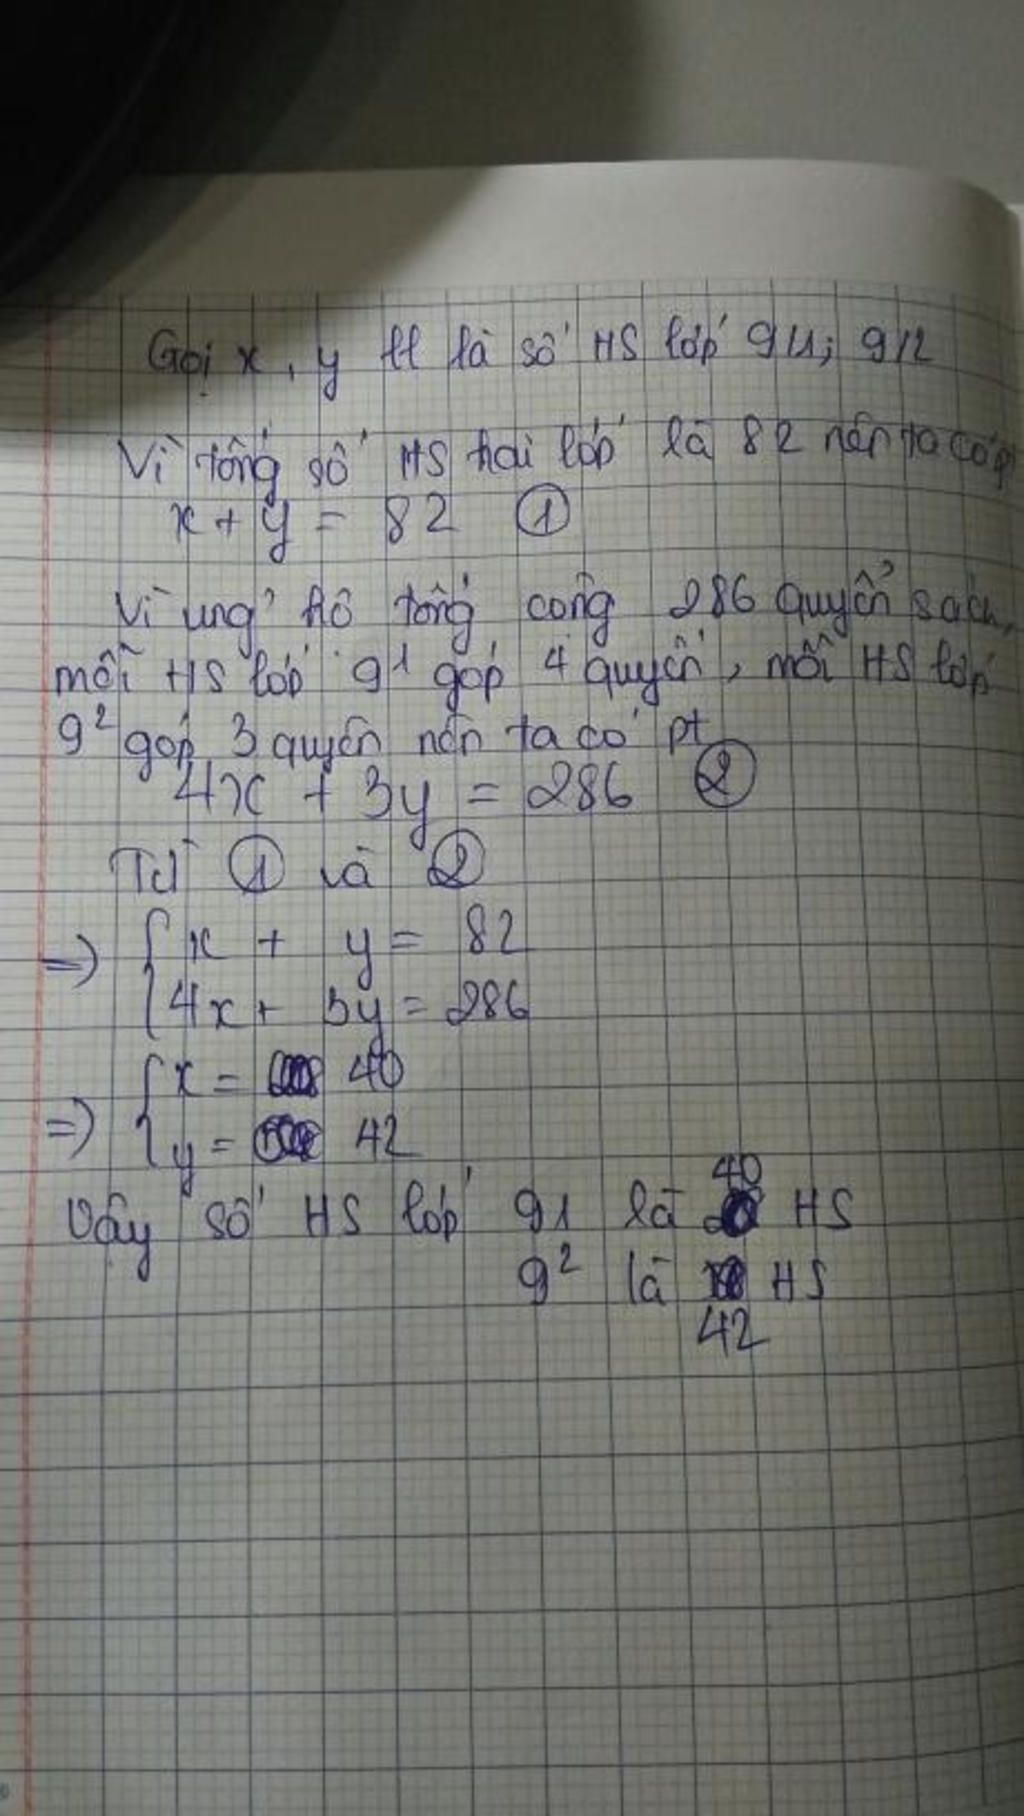 Gọi x, y ll là số HS lớp 9/1; 9/2
Vì tổng số HS hai lớp là 82 nên ta có pt
x + y = 82 ①
Vì ủng hộ tổng cộng 286 quyển sách,
mỗi HS lớp 9¹ góp 4 quyển, mỗi HS lớp
9² góp 3 quyển nên ta có pt
4x + 3y = 286 ②
Từ ① và ②
=> { x + y = 82
4x + 3y = 286
=> { x = 40
y = 42
Vậy số HS lớp 91 là 40 HS
9² là HS
42